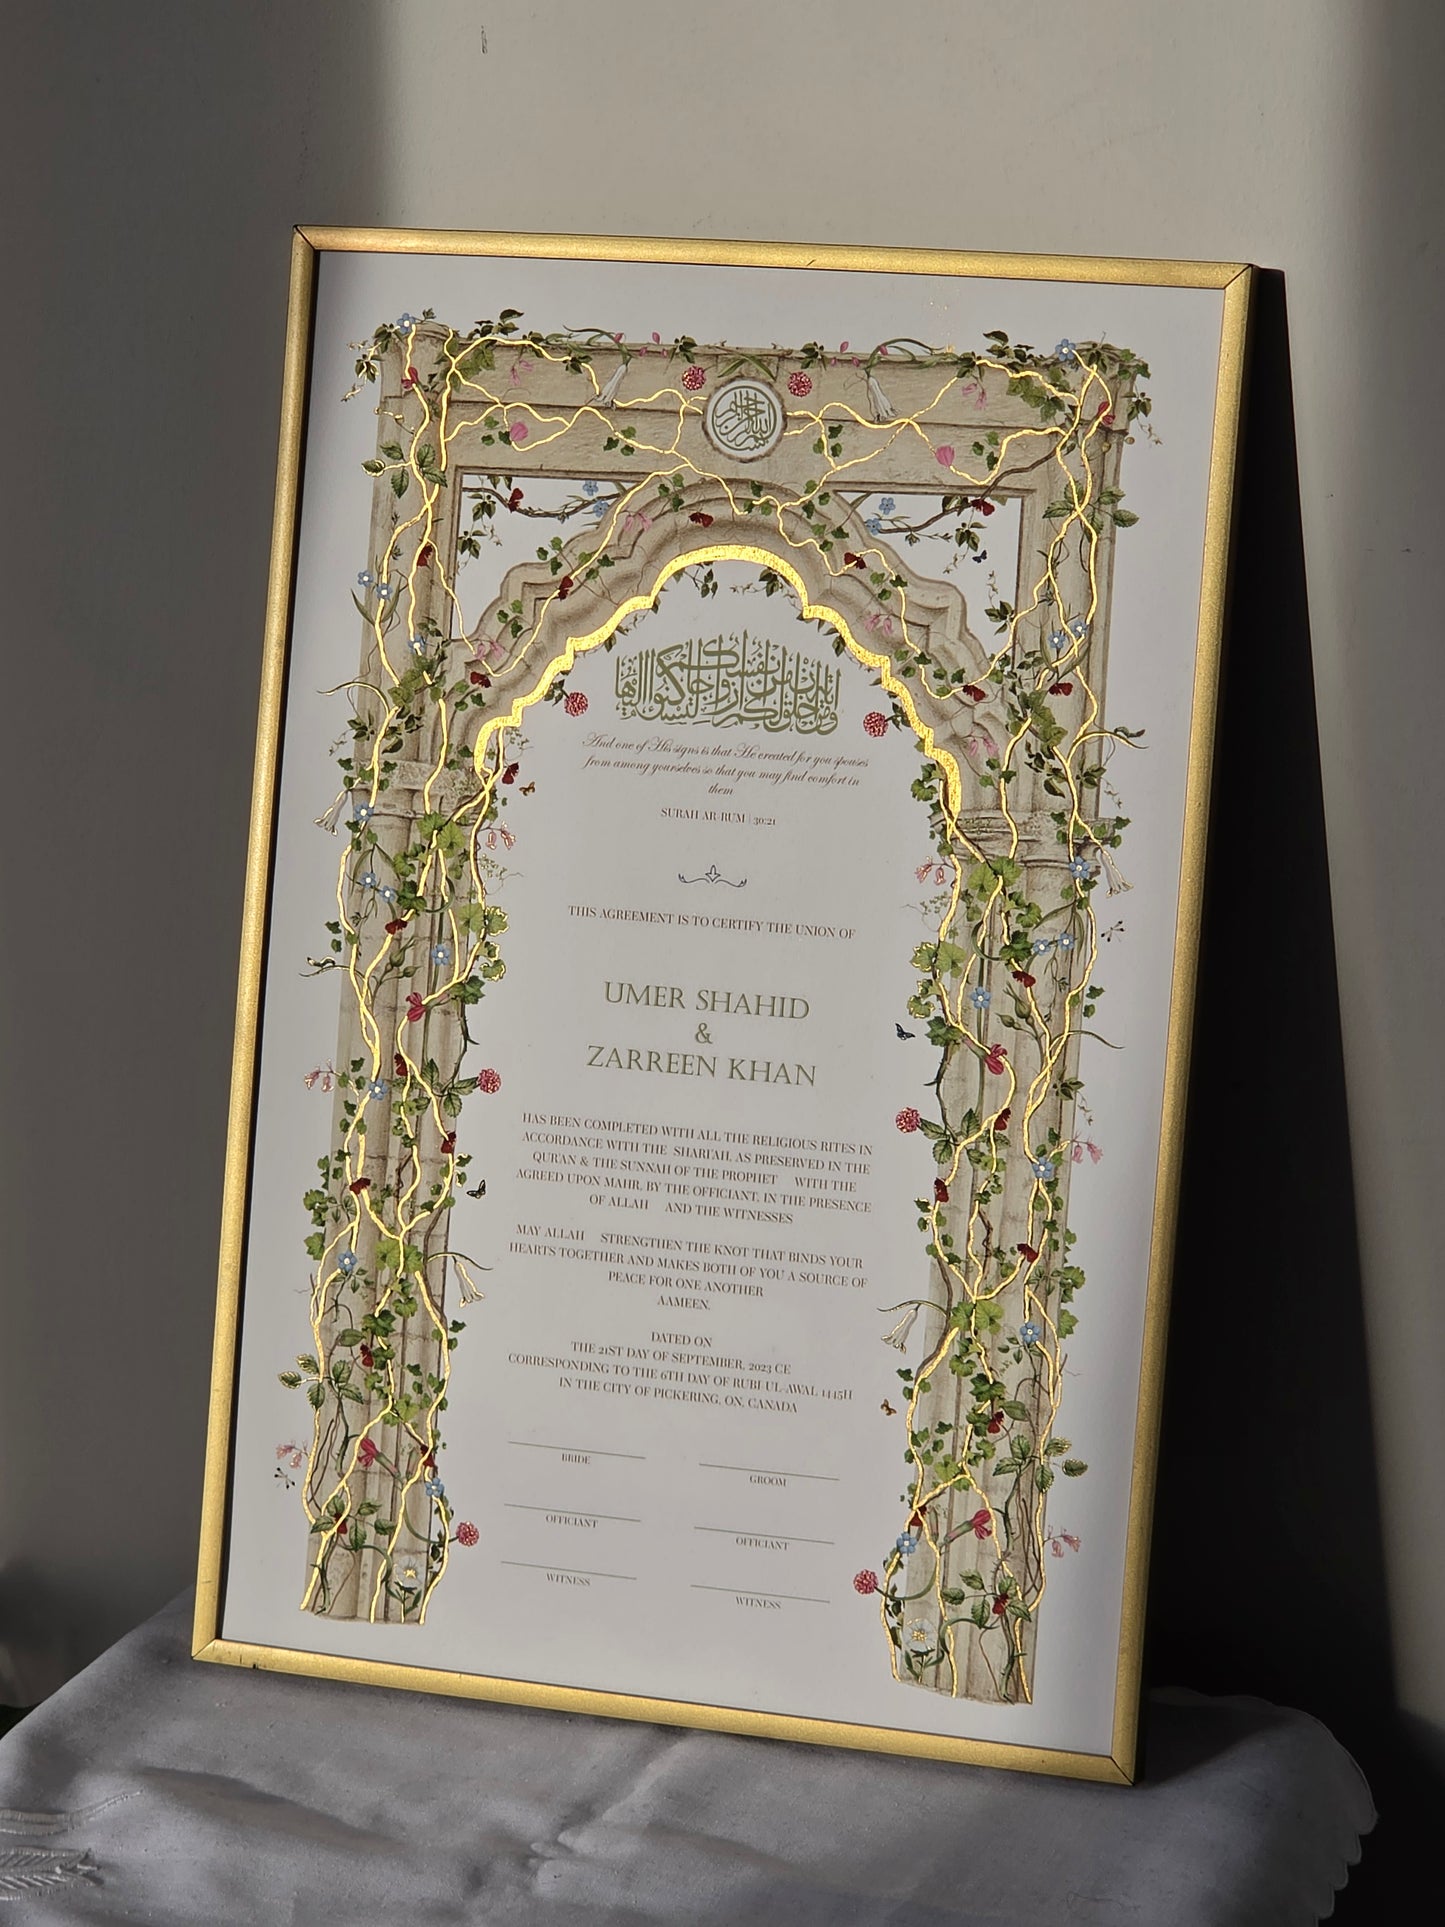 بسم الله الرحمن الرحيم
ومن آياته أن خلق لكم من أنفسكم أزواجا لتسكنوا إليها
And one of His signs is that He created for you spouses
from among yourselves so that you may find comfort in
them
SURAH AR-RUM | 30:21
THIS AGREEMENT IS TO CERTIFY THE UNION OF
UMER SHAHID
&
ZARREEN KHAN
HAS BEEN COMPLETED WITH ALL THE RELIGIOUS RITES IN
ACCORDANCE WITH THE SHARI'AH, AS PRESERVED IN THE
QUR'AN & THE SUNNAH OF THE PROPHET WITH THE
AGREED UPON MAHR, BY THE OFFICIANT, IN THE PRESENCE
OF ALLAH AND THE WITNESSES
MAY ALLAH STRENGTHEN THE KNOT THAT BINDS YOUR
HEARTS TOGETHER AND MAKES BOTH OF YOU A SOURCE OF
PEACE FOR ONE ANOTHER
AAMEEN.
DATED ON
THE 21ST DAY OF SEPTEMBER, 2023 CE
CORRESPONDING TO THE 6TH DAY OF RUBI-UL-AWAL 1445H
IN THE CITY OF PICKERING, ON, CANADA
BRIDE
GROOM
OFFICIANT
OFFICIANT
WITNESS
WITNESS